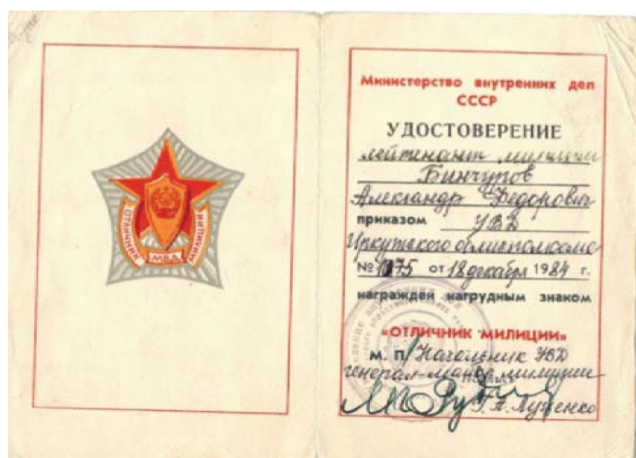 ОТЛИЧНИК МИЛИЦИИ
МВД
Министерство внутренних дел
СССР
УДОСТОВЕРЕНИЕ
лейтенант милиции
Бинчуров
Александр Федорович
приказом УВД
Иркутского облисполкома
№ 1075 от 18 декабря 1984 г.
награжден нагрудным знаком
«ОТЛИЧНИК МИЛИЦИИ»
М. П. Начальник УВД
генерал-майор милиции